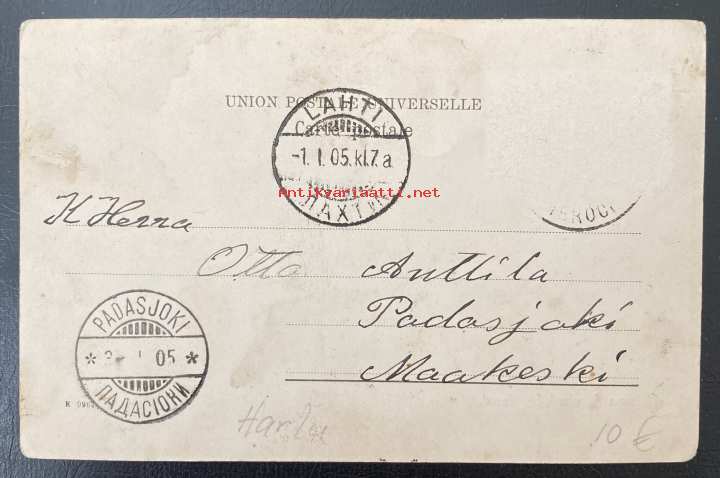 UNION POSTALE UNIVERSELLE
Carte postale
LAHTI
-1. I. 05. kl.7.a
ЛАХТИ
Antikvariaatti.net
K Herra
Otto Anttila
Padasjoki
Maakeski
PADASJOKI
I 05
ПАДАСІОКИ
10 €